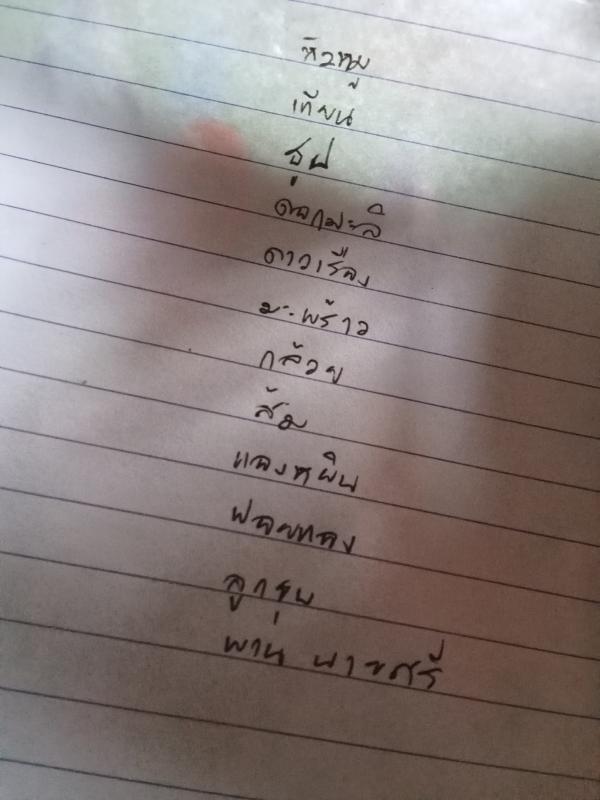 หัวหมู
เทียน
ธูป
ดอกมะลิ
ดาวเรือง
มะพร้าว
กล้วย
ส้ม
แอปเปิล
ฝอยทอง
ลูกชุบ
พาน บายศรี